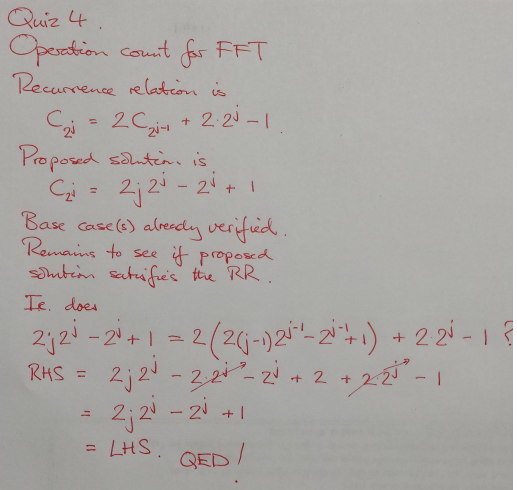 Quiz 4.
Operation count for FFT
Recurrence relation is
C_{2^j} = 2C_{2^{j-1}} + 2·2^j - 1.
Proposed solution is
C_{2^j} = 2j2^j - 2^j + 1
Base case(s) already verified.
Remains to see if proposed
solution satisfies the RR.
I.e. does
2j2^j - 2^j + 1 = 2(2(j-1)2^{j-1} - 2^{j-1} + 1) + 2·2^j - 1 ?
RHS = 2j2^j - 2·2^j - 2^j + 2 + 2·2^j - 1
= 2j2^j - 2^j + 1
= LHS. QED!